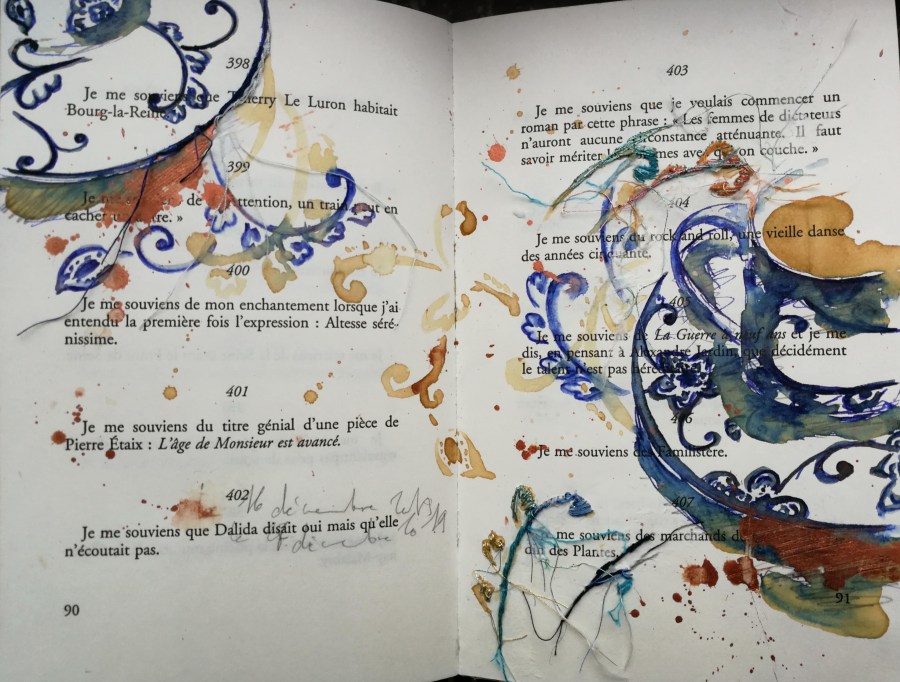 398
Je me souviens que Thierry Le Luron habitait
Bourg-la-Reine.
399
Je me souviens de « Attention, un train peut en
cacher un autre. »
400
Je me souviens de mon enchantement lorsque j'ai
entendu la première fois l'expression : Altesse séré-
nissime.
401
Je me souviens du titre génial d'une pièce de
Pierre Étaix : L'âge de Monsieur est avancé.
402
16 décembre
Je me souviens que Dalida disait oui mais qu'elle
décembre
n'écoutait pas.
90
403
Je me souviens que je voulais commencer un
roman par cette phrase : « Les femmes de dictateurs
n'auront aucune circonstance atténuante. Il faut
savoir mériter les hommes avec qui on couche. »
404
Je me souviens du rock and roll, une vieille danse
des années cinquante.
405
Je me souviens de La Guerre à neuf ans et je me
dis, en pensant à Alexandre Jardin, que décidément
le talent n'est pas héréditaire.
406
Je me souviens des Familistère.
407
Je me souviens des marchands du
din des Plantes.
91